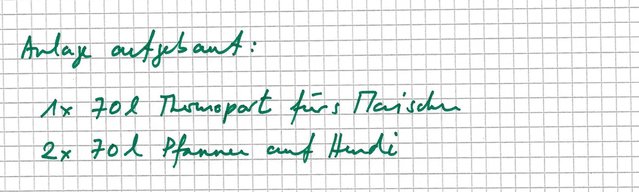 Anlage aufgebaut:
1x 70l Thermoport fürs Maischen
2x 70l Pfannen auf Hendi